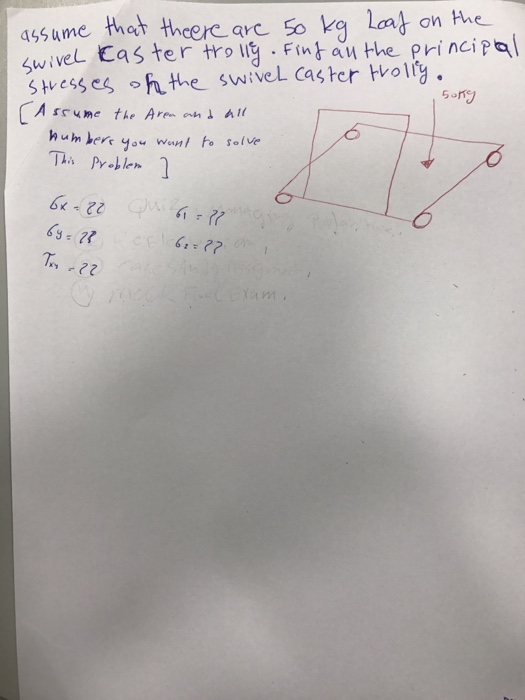 assume that theere are 50 kg Loaf on the
swivel caster trolly. Finf all the principal
stresses on the swivel caster trolly.
50kg
[Assume the Area and All
numbers you want to solve
This Problem ]
σx = ??
σ1 = ??
σy = ??
σ2 = ??
τxy = ??
Exam.